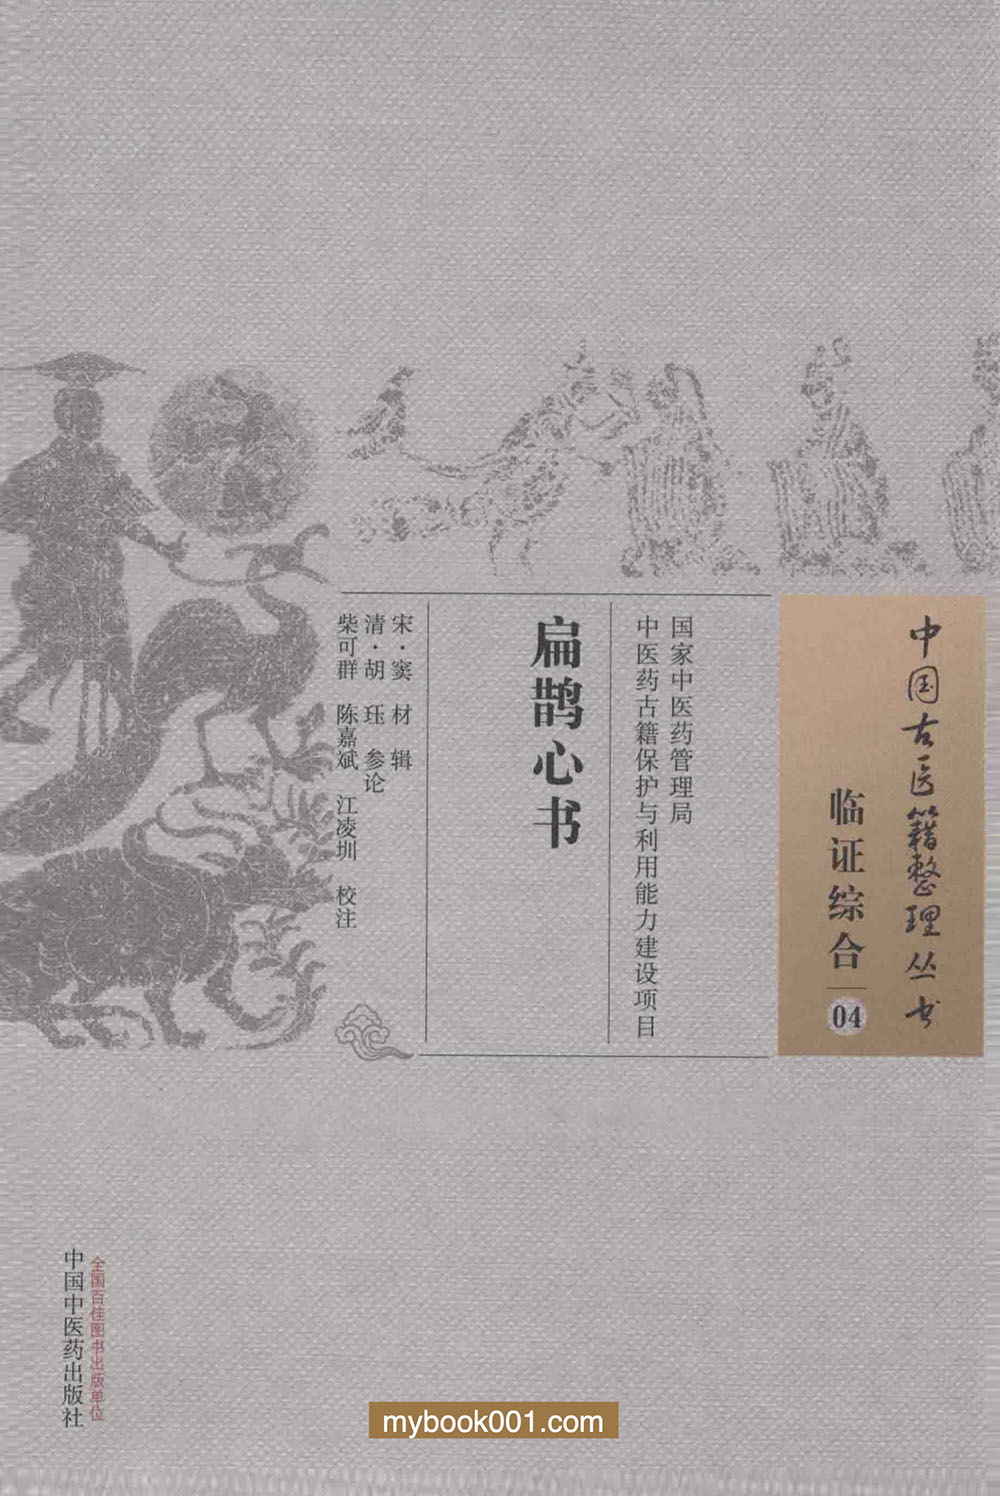 中国古医籍整理丛书
临证综合
04
国家中医药管理局
中医药古籍保护与利用能力建设项目
扁鹊心书
宋·窦 材 辑
清·胡 珏 参论
柴可群 陈嘉斌 江凌圳 校注
全国百佳图书出版单位
中国中医药出版社
mybook001.com